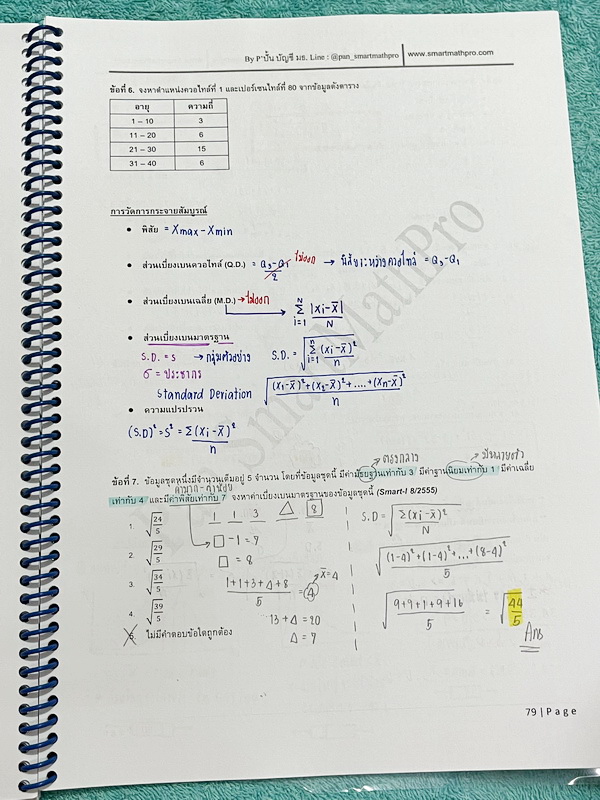 By P'ปั้น บัญชี มธ. Line : @pan_smartmathpro | www.smartmathpro.com
ข้อที่ 6. จงหาตำแหน่งควอไทล์ที่ 1 และเปอร์เซนไทล์ที่ 80 จากข้อมูลดังตาราง
อายุ ความถี่
1 – 10 3
11 – 20 6
21 – 30 15
31 – 40 6
การวัดการกระจายสัมบูรณ์
• พิสัย = Xmax – Xmin
• ส่วนเบี่ยงเบนควอไทล์ (Q.D.) = Q₃-Q₁/2 ไม่ออก → พิสัยระหว่างควอไทล์ = Q₃-Q₁
• ส่วนเบี่ยงเบนเฉลี่ย (M.D.) → ไม่ออก
N Σ i=1 |xi-x̄| / N
• ส่วนเบี่ยงเบนมาตรฐาน
S.D. = s → กลุ่มตัวอย่าง S.D. = √ n Σ i=1 (xi-x̄)² / n
σ = ประชากร
Standard Deviation √ (x₁-x̄)²+(x₂-x̄)²+....+(xn-x̄)² / n
• ความแปรปรวน
(S.D)² = s² = Σ(xi-x̄)² / n
ตรงกลาง
ข้อที่ 7. ข้อมูลชุดหนึ่งมีจำนวนเต็มอยู่ 5 จำนวน โดยที่ข้อมูลชุดนี้ มีค่ามัธยฐานเท่ากับ 3 มีค่าฐานนิยมเท่ากับ 1 มีค่าเฉลี่ย
เท่ากับ 4 และมีค่าพิสัยเท่ากับ 7 จงหาค่าเบี่ยงเบนมาตรฐานของข้อมูลชุดนี้ (Smart-I 8/2555)
1. √24/5
2. √29/5
3. √34/5
4. √39/5
5. ไม่มีคำตอบข้อใดถูกต้อง
1 1 3 △ 8
□ -1 = 7
□ = 8
1+1+3+△+8 / 5 = 4 x̄=4
13+△ = 20
△ = 7
S.D = √ Σ(xi-x̄)² / N
√ (1-4)²+(1-4)²+...+(8-4)² / 5
√ 9+9+1+9+16 / 5 = √ 44/5
Ans
79 | Page
SmartMathPro